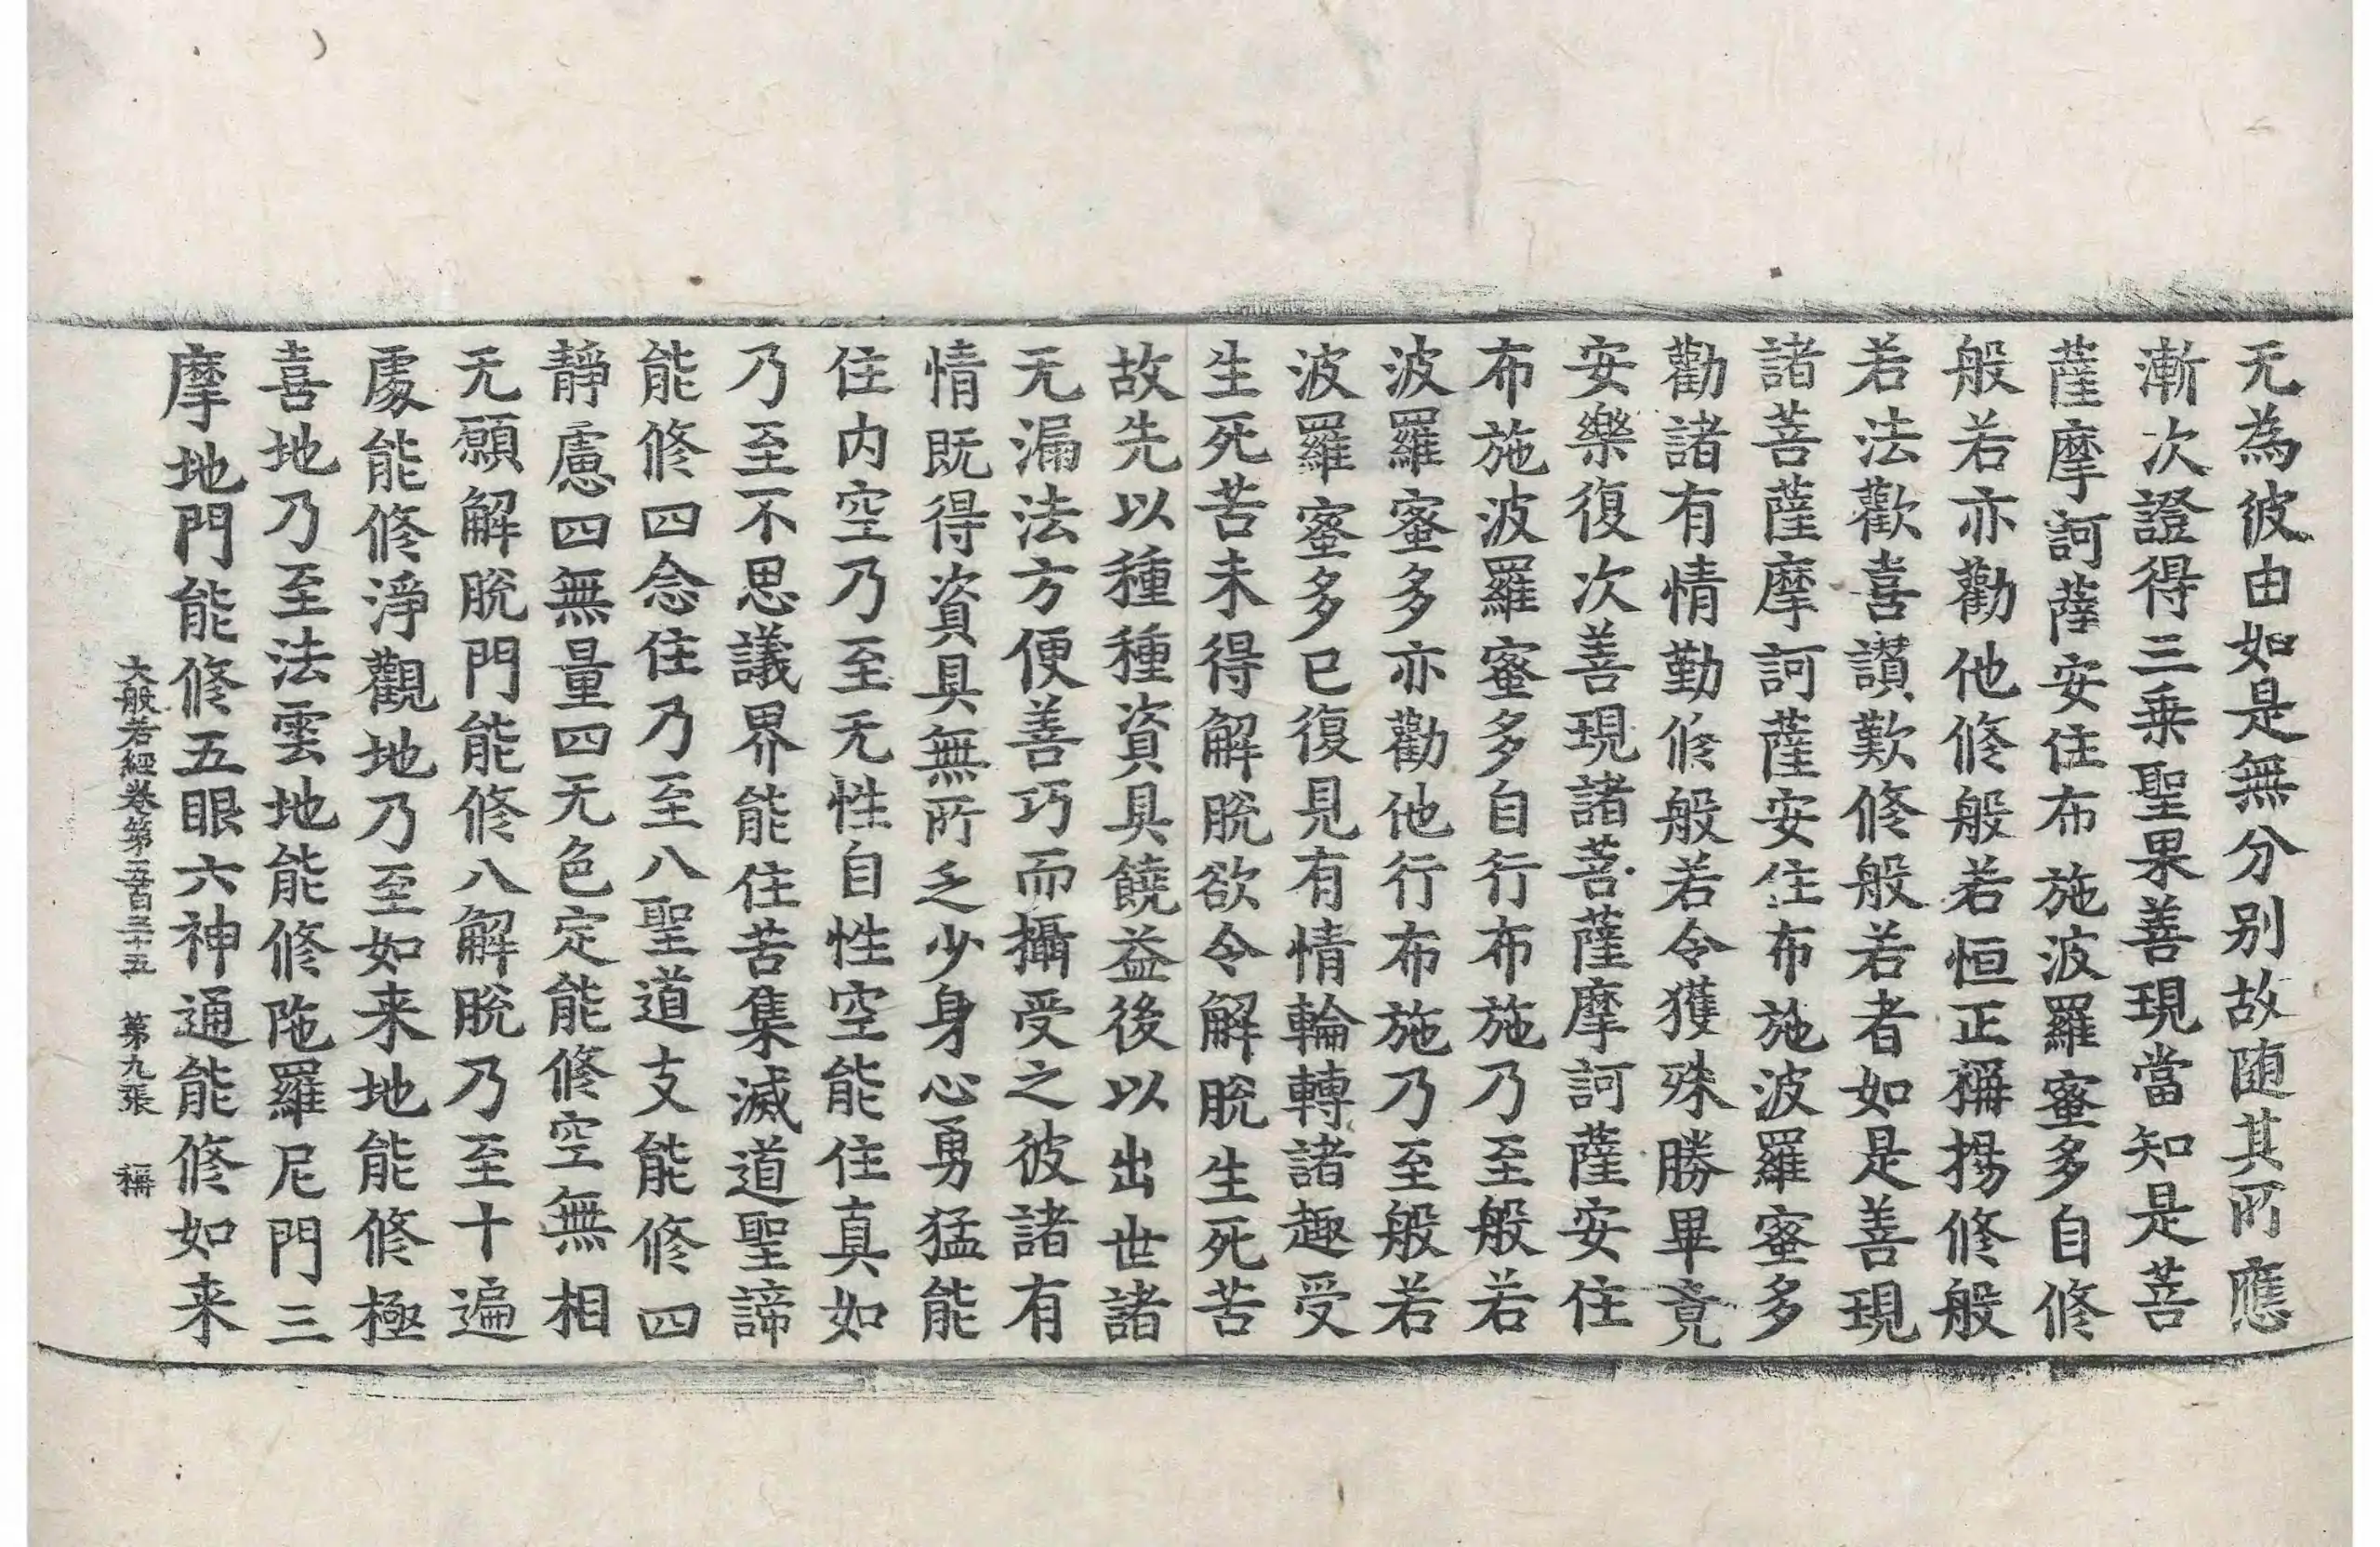 无為彼由如是無分别故随其所應
漸次證得三乗聖果善現當知是菩
薩摩訶薩安住布施波羅蜜多自修
般若亦勸他修般若恒正稱揚修般
若法歡喜讃歎修般若者如是善現
諸菩薩摩訶薩安住布施波羅蜜多
勸諸有情勤修般若令獲殊勝畢竟
安樂復次善現諸菩薩摩訶薩安住
布施波羅蜜多自行布施乃至般若
波羅蜜多亦勸他行布施乃至般若
波羅蜜多已復見有情輪轉諸趣受
生死苦未得解脫欲令解脫生死苦
故先以種種資具饒益後以出世諸
无漏法方便善巧而攝受之彼諸有
情既得資具無所乏少身心勇猛能
住内空乃至无性自性空能住真如
乃至不思議界能住苦集滅道聖諦
能修四念住乃至八聖道支能修四
靜慮四無量四无色定能修空無相
无願解脫門能修八解脫乃至十遍
處能修淨觀地乃至如来地能修極
喜地乃至法雲地能修陁羅尼門三
摩地門能修五眼六神通能修如来
大般若經卷第五百三十五 第九張 稱